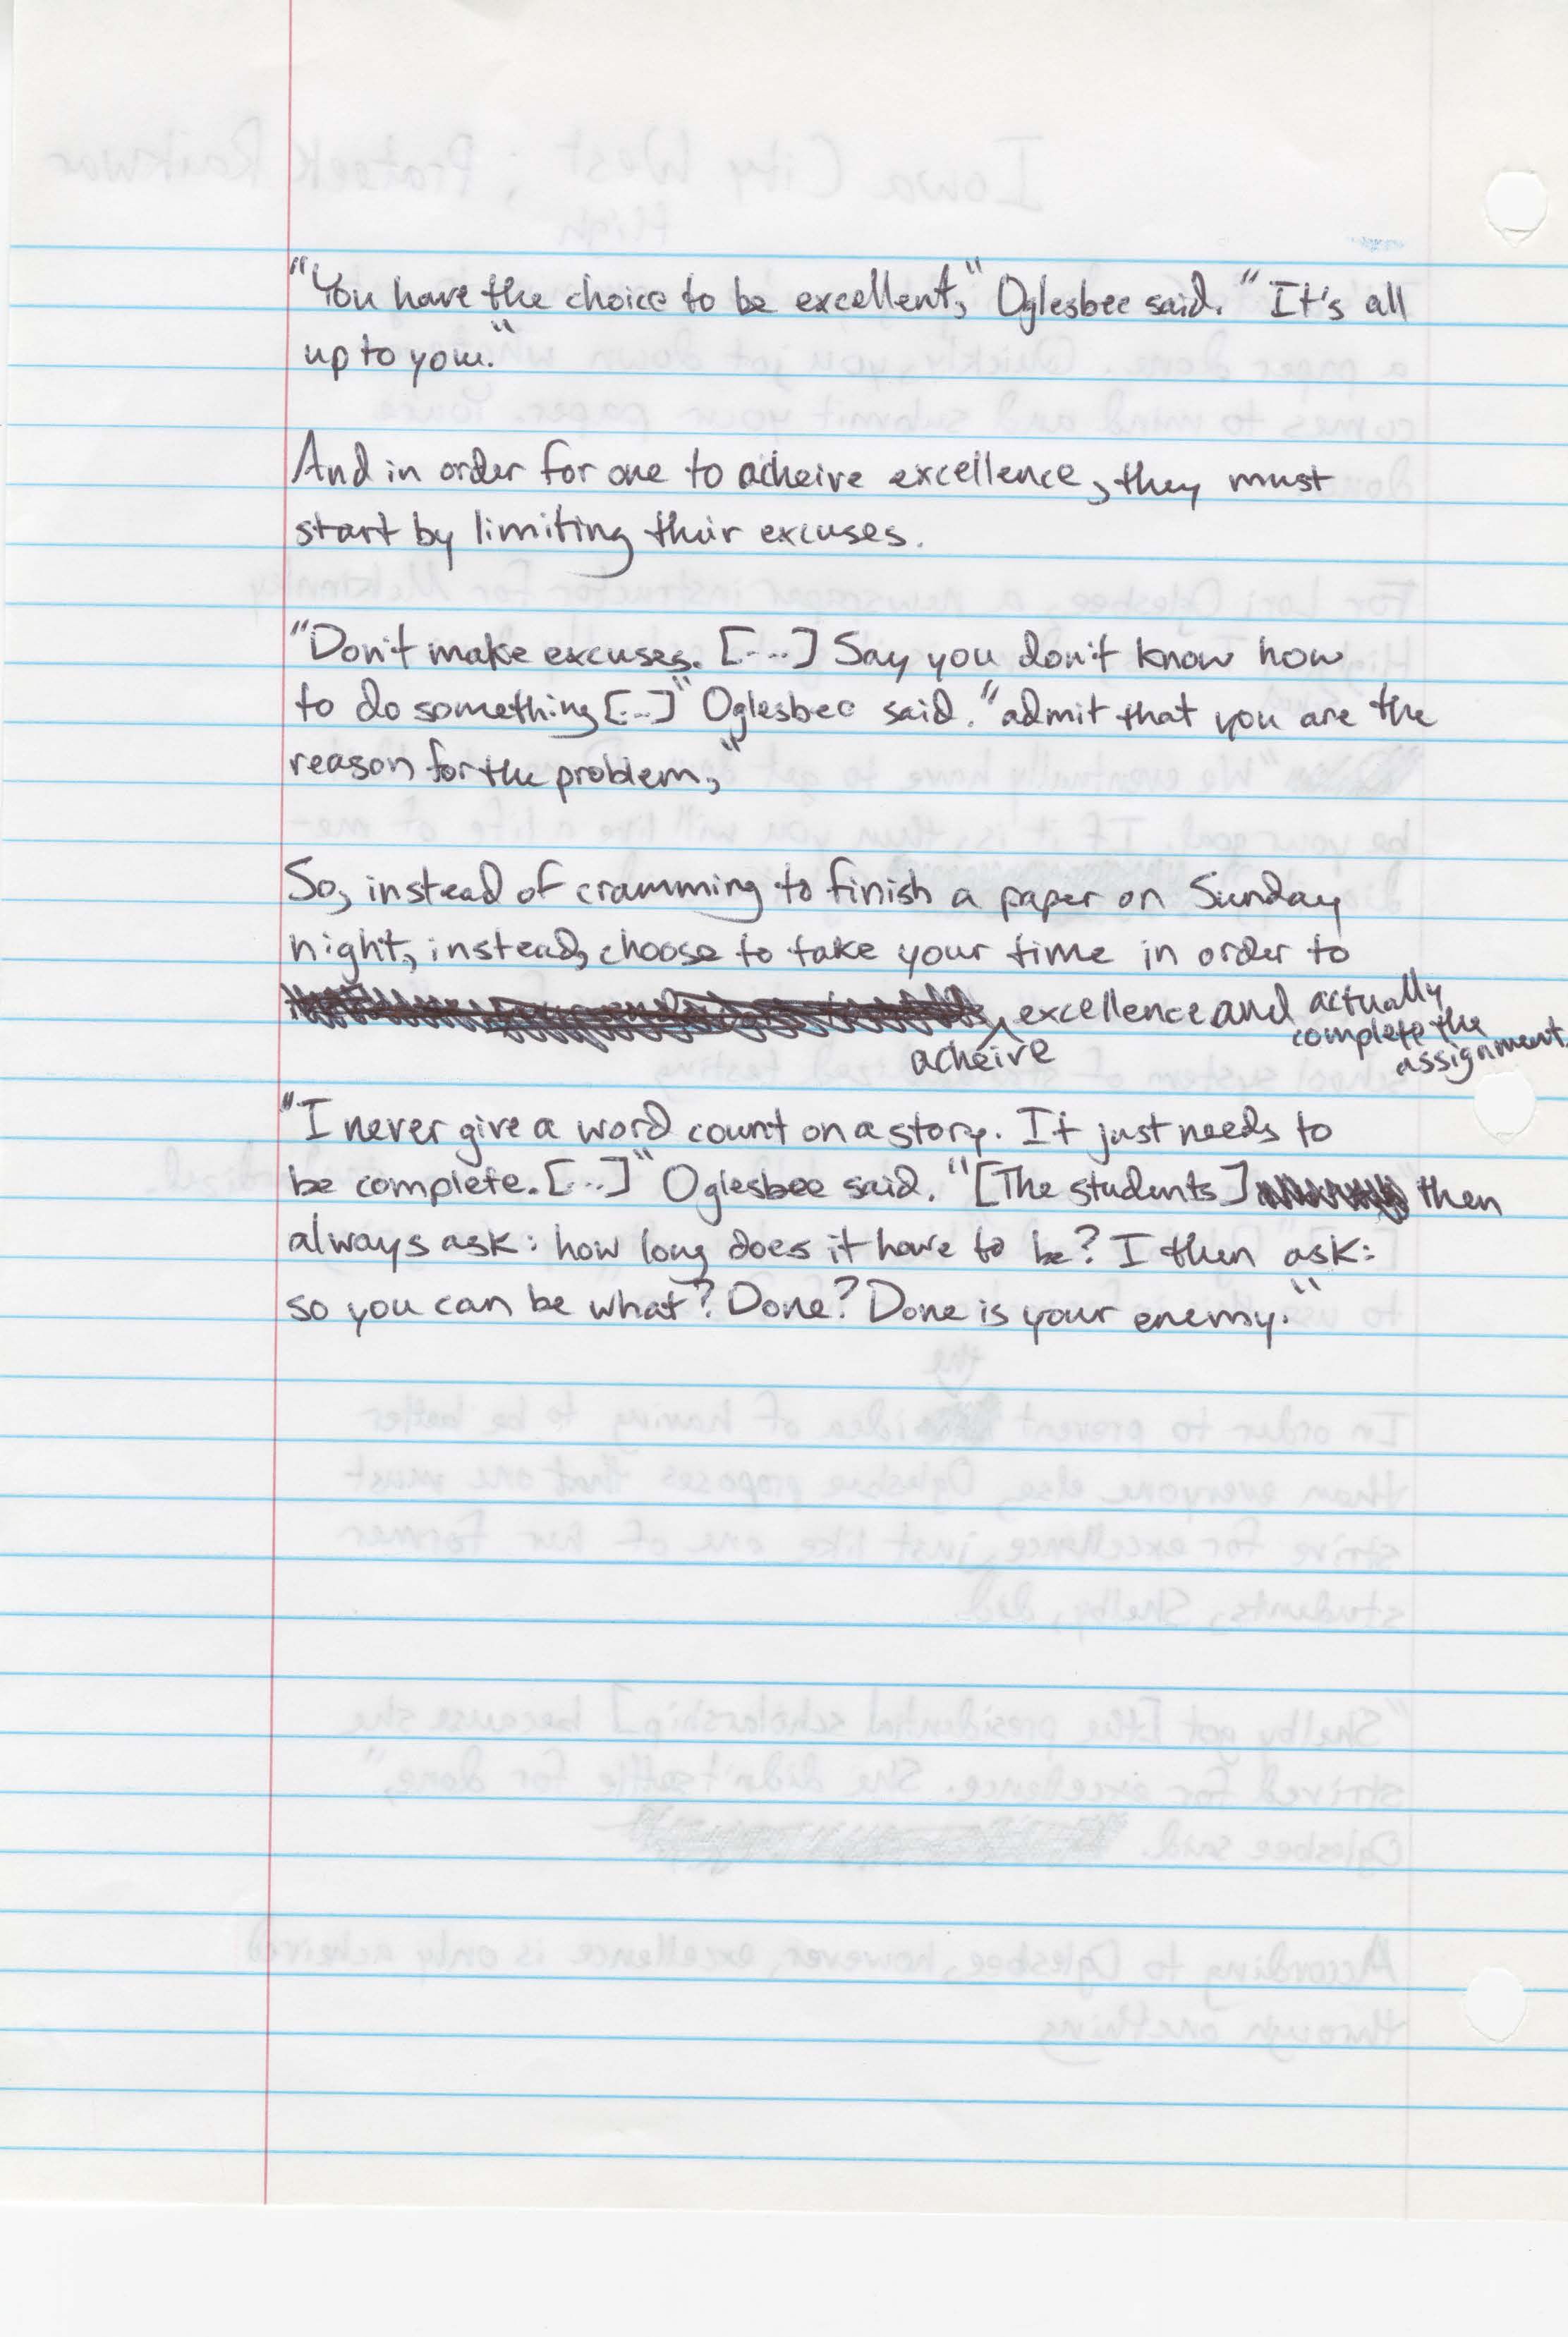 "You have the choice to be excellent," Oglesbee said. "It's all
up to you."
And in order for one to acheive excellence, they must
start by limiting their excuses.
"Don't make excuses. [...] Say you don't know how
to do something [...]" Oglesbee said. "admit that you are the
reason for the problem,"
So, instead of cramming to finish a paper on Sunday
night, instead, choose to take your time in order to
acheive excellence and actually
complete the
assignment.
"I never give a word count on a story. It just needs to
be complete. [...]" Oglesbee said. "[The students] then
always ask: how long does it have to be? I then ask:
so you can be what? Done? Done is your enemy."